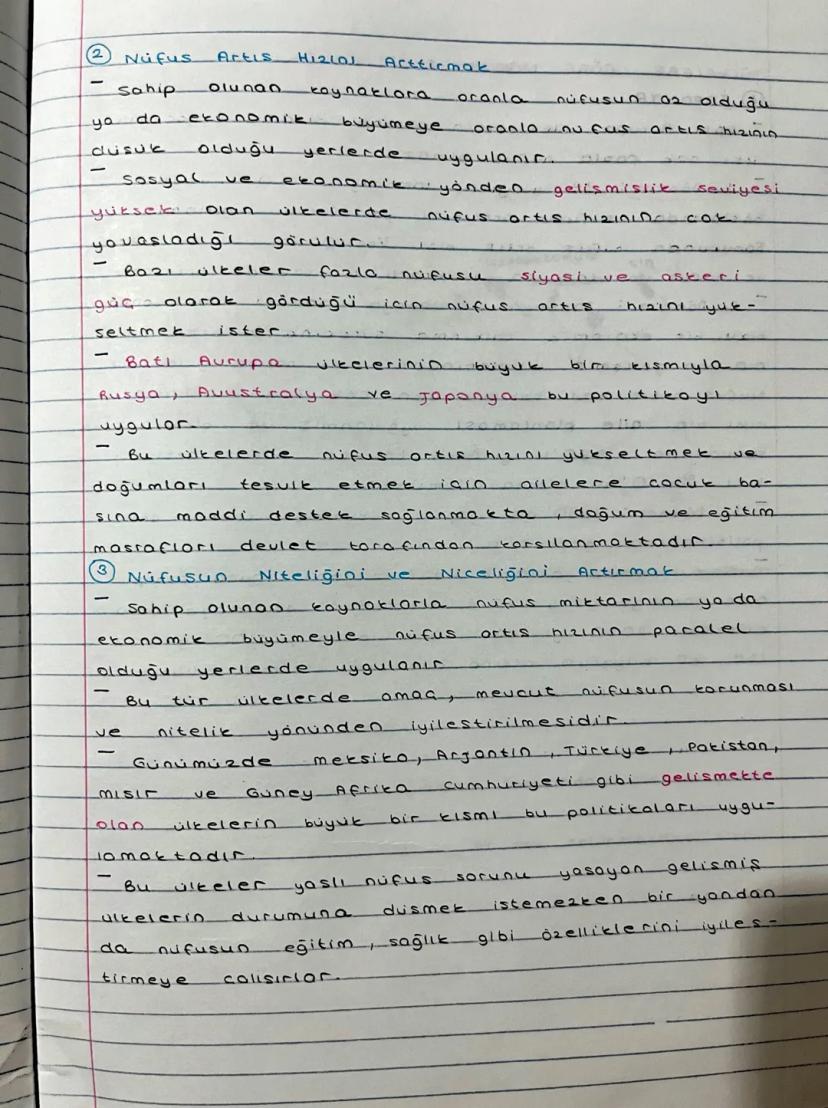 ② Nüfus Artıs Hızını Arttırmak
- Sahip olunan kaynaklara oranla nüfusun az olduğu
ya da ekonomik büyümeye oranla nüfus artıs hızının
düsük olduğu yerlerde uygulanır.
- Sosyal ve ekonomik yönden gelismislik seviyesi
yüksek olan ülkelerde nüfus artıs hızının çok
yavasladığı görülür.
- Bazı ülkeler fazla nüfusu siyasi ve askeri
güç olarak gördüğü için nüfus artıs hızını yük-
seltmek ister.
- Batı Avrupa ülkelerinin büyük bir kısmıyla
Rusya, Avustralya ve Japonya bu politikayı
uygular.
- Bu ülkelerde nüfus artıs hızını yükseltmek ve
doğumları tesvik etmek için ailelere çocuk ba-
sına maddi destek sağlanmakta, doğum ve eğitim
masrafları devlet tarafından karsılanmaktadır.
③ Nüfusun Niteliğini ve Niceliğini Artırmak
- Sahip olunan kaynaklarla nüfus miktarının ya da
ekonomik büyümeyle nüfus artıs hızının paralel
olduğu yerlerde uygulanır
- Bu tür ülkelerde amaç, mevcut nüfusun korunması
ve nitelik yönünden iyilestirilmesidir.
- Günümüzde meksika, Arjantin, Türkiye, Pakistan,
mısır ve Güney Afrika Cumhuriyeti gibi gelismekte
olan ülkelerin büyük bir kısmı bu politikaları uygu-
lamaktadır.
- Bu ülkeler yaslı nüfus sorunu yasayan gelismiş
ülkelerin durumuna düsmek istemezken bir yandan
da nüfusun eğitim, sağlık gibi özelliklerini iyiles-
tirmeye çalısırlar.